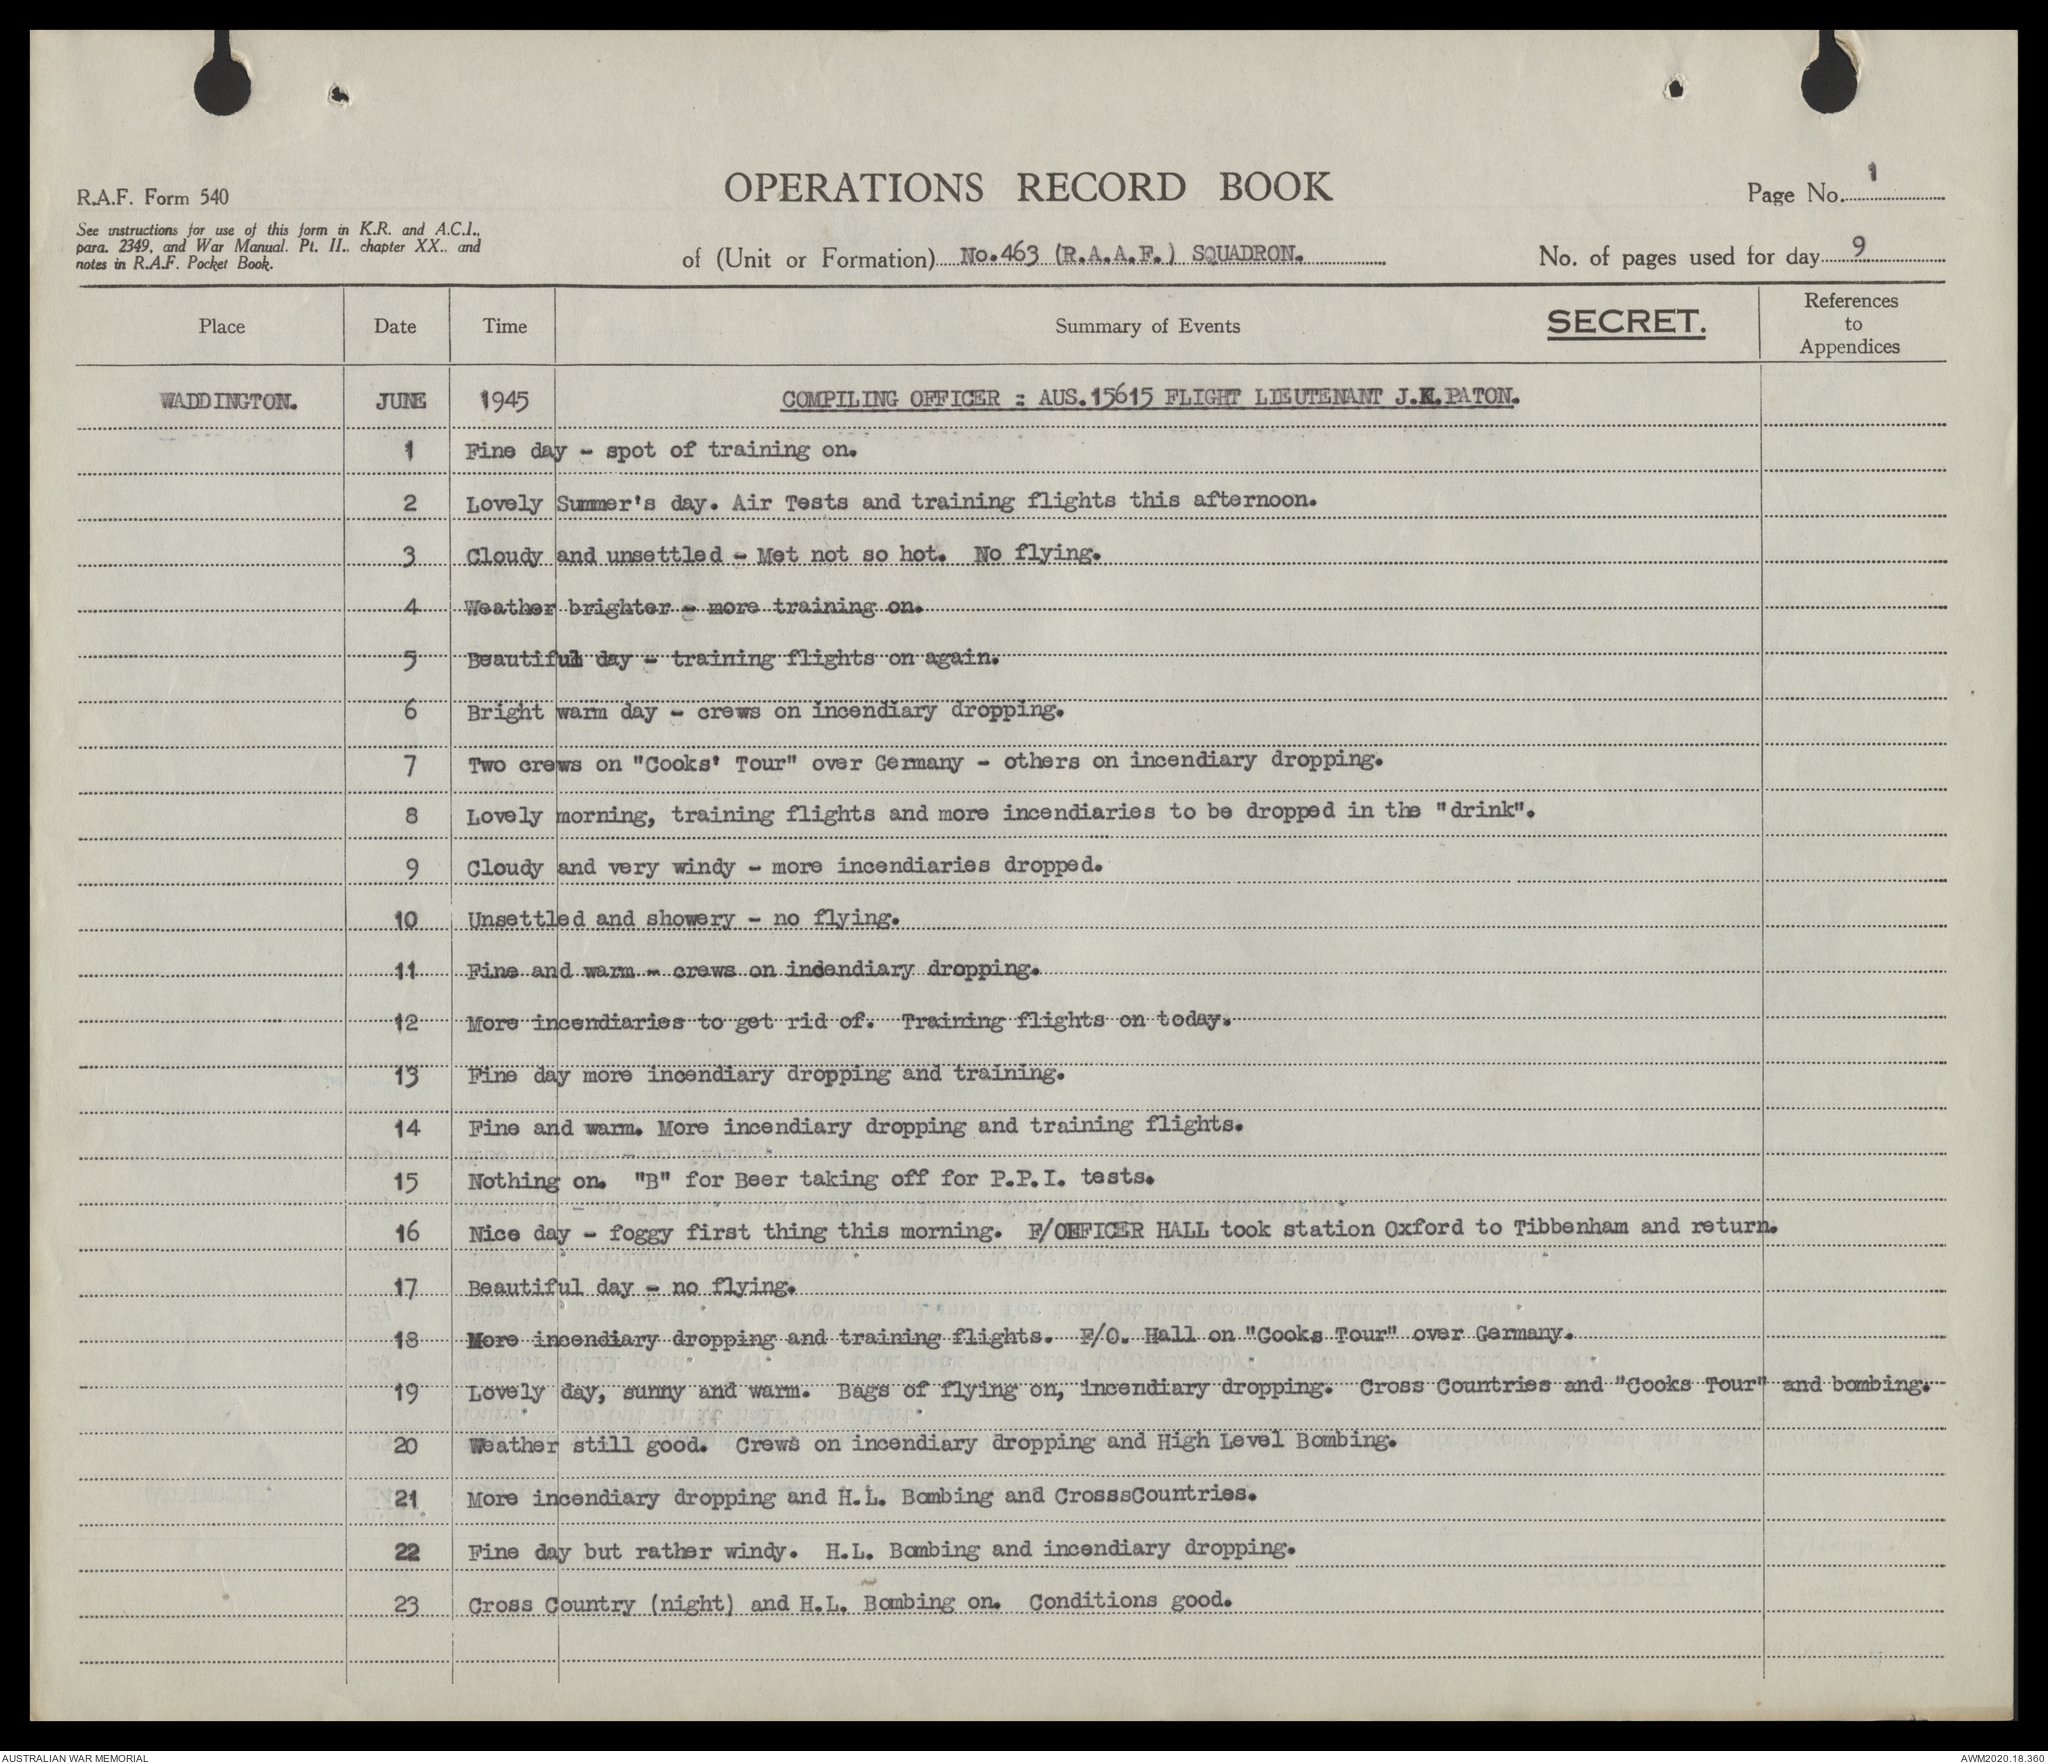 R.A.F. Form 540
See instructions for use of this form in K.R. and A.C.I.,
para. 2349, and War Manual. Pt. II., chapter XX.. and
notes in R.A.F. Pocket Book.
OPERATIONS RECORD BOOK
of (Unit or Formation) No.463 (R.A.A.F.) SQUADRON.
Page No. 1
No. of pages used for day 9
Place Date Time Summary of Events SECRET. References to Appendices
WADDINGTON. JUNE 1945 COMPILING OFFICER : AUS.15615 FLIGHT LIEUTENANT J.K.PATON.
1 Fine day - spot of training on.
2 Lovely Summer's day. Air Tests and training flights this afternoon.
3 Cloudy and unsettled - Met not so hot. No flying.
4 Weather brighter - more training on.
5 Beautiful day - training flights on again.
6 Bright warm day - crews on incendiary dropping.
7 Two crews on "Cooks' Tour" over Germany - others on incendiary dropping.
8 Lovely morning, training flights and more incendiaries to be dropped in the "drink".
9 Cloudy and very windy - more incendiaries dropped.
10 Unsettled and showery - no flying.
11 Fine and warm - crews on indendiary dropping.
12 More incendiaries to get rid of. Training flights on today.
13 Fine day more incendiary dropping and training.
14 Fine and warm. More incendiary dropping and training flights.
15 Nothing on. "B" for Beer taking off for P.P.I. tests.
16 Nice day - foggy first thing this morning. F/OEFICER HALL took station Oxford to Tibbenham and return.
17 Beautiful day - no flying.
18 More incendiary dropping and training flights. F/O. Hall on "Cooks Tour" over Germany.
19 Lovely day, sunny and warm. Bags of flying on, incendiary dropping. Cross Countries and "Cooks Tour" and bombing.
20 Weather still good. Crews on incendiary dropping and High Level Bombing.
21 More incendiary dropping and H.L. Bombing and CrosssCountries.
22 Fine day but rather windy. H.L. Bombing and incendiary dropping.
23 Cross Country (night) and H.L. Bombing on. Conditions good.
AUSTRALIAN WAR MEMORIAL
AWM2020.18.360